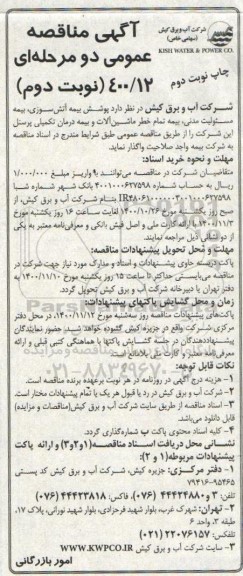 شرکت آب و برق کیش
(سهامی خاص)
KISH WATER & POWER CO.
چاپ نوبت دوم
آگهی مناقصه
عمومی دو مرحله‌ای
۴۰۰/۱۲ (نوبت دوم)
شرکت آب و برق کیش در نظر دارد پوشش بیمه آتش‌سوزی، بیمه
مسئولیت مدنی، بیمه تمام خطر ماشین‌آلات و بیمه درمان تکمیلی پرسنل
این شرکت را از طریق مناقصه عمومی طبق شرایط مندرج در اسناد مناقصه
به شرکت بیمه واجد صلاحیت واگذار نماید.
مهلت و نحوه خرید اسناد:
متقاضیان شرکت در مناقصه می‌توانند با واریز مبلغ ۱/۰۰۰/۰۰۰
ریال به حساب شماره ۴۰۰۱۰۰۰۶۲۷۵۹۸ بانک شهر شماره شبا
بنام شرکت آب و برق کیش، از
صبح روز یکشنبه مورخ ۱۴۰۰/۱۰/۲۶ لغایت ساعت ۱۶ روز یکشنبه مورخ
۱۴۰۰/۱۱/۳ با ارائه کارت ملی و اصل فیش بانکی و معرفی‌نامه معتبر به یکی
از نشانی ذیل مراجعه نمایند.
مهلت و محل تحویل پیشنهادات مناقصه:
پاکت دربسته حاوی پیشنهادات و اسناد و مدارک مورد نیاز جهت شرکت در
مناقصه می‌بایستی حداکثر تا ساعت ۱۵ روز یکشنبه مورخ ۱۴۰۰/۱۱/۱۰ به
دفتر تهران یا دبیرخانه شرکت آب و برق کیش تحویل گردد.
زمان و محل گشایش پاکتهای پیشنهادات:
پاکت‌های پیشنهادات مناقصه روز سه‌شنبه مورخ ۱۴۰۰/۱۱/۱۲، در محل دفتر
مرکزی شرکت واقع در جزیره کیش گشوده خواهد شد. حضور نمایندگان
پیشنهاددهندگان در جلسه گشایش پاکتها با هماهنگی کتبی قبلی و ارائه
معرفی‌نامه معتبر و کارت ملی بلامانع است.
نکات قابل توجه:
۱- هزینه درج آگهی در روزنامه در هر نوبت برعهده برنده مناقصه است.
۲- شرکت آب و برق کیش در رد یا قبول هر یک یا تمام پیشنهادات مختار است.
۳- اسناد مناقصه از طریق سایت شرکت آب و برق کیش(مناقصات و مزایده)
قابل دانلود می‌باشد.
۴- کلیه اسناد محتوی پاکت ب شماره‌گذاری گردد.
نشانی محل دریافت اسناد مناقصه(۱و۲و۳) و ارائه پاکت
پیشنهادات مربوطه(۱ و ۲):
۱- دفتر مرکزی: جزیره کیش، شرکت آب و برق کیش کد پستی
۷۹۴۱۶-۹۵۴۶۵
تلفن: ۲ و ۴۴۴۲۴۸۸۰ (۰۷۶)، فاکس: ۴۴۴۲۳۸۱۸ (۰۷۶)
۲- تهران: شهرک غرب، بلوار شهید فرحزادی، بلوار شهید نورانی، پلاک ۱۷،
طبقه ۳، واحد ۶
تلفکس: ۲۲۰۷۶۱۵۷ (۰۲۱)
۳- سایت شرکت آب و برق کیش WWW.KWPCO.IR
امور بازرگانی